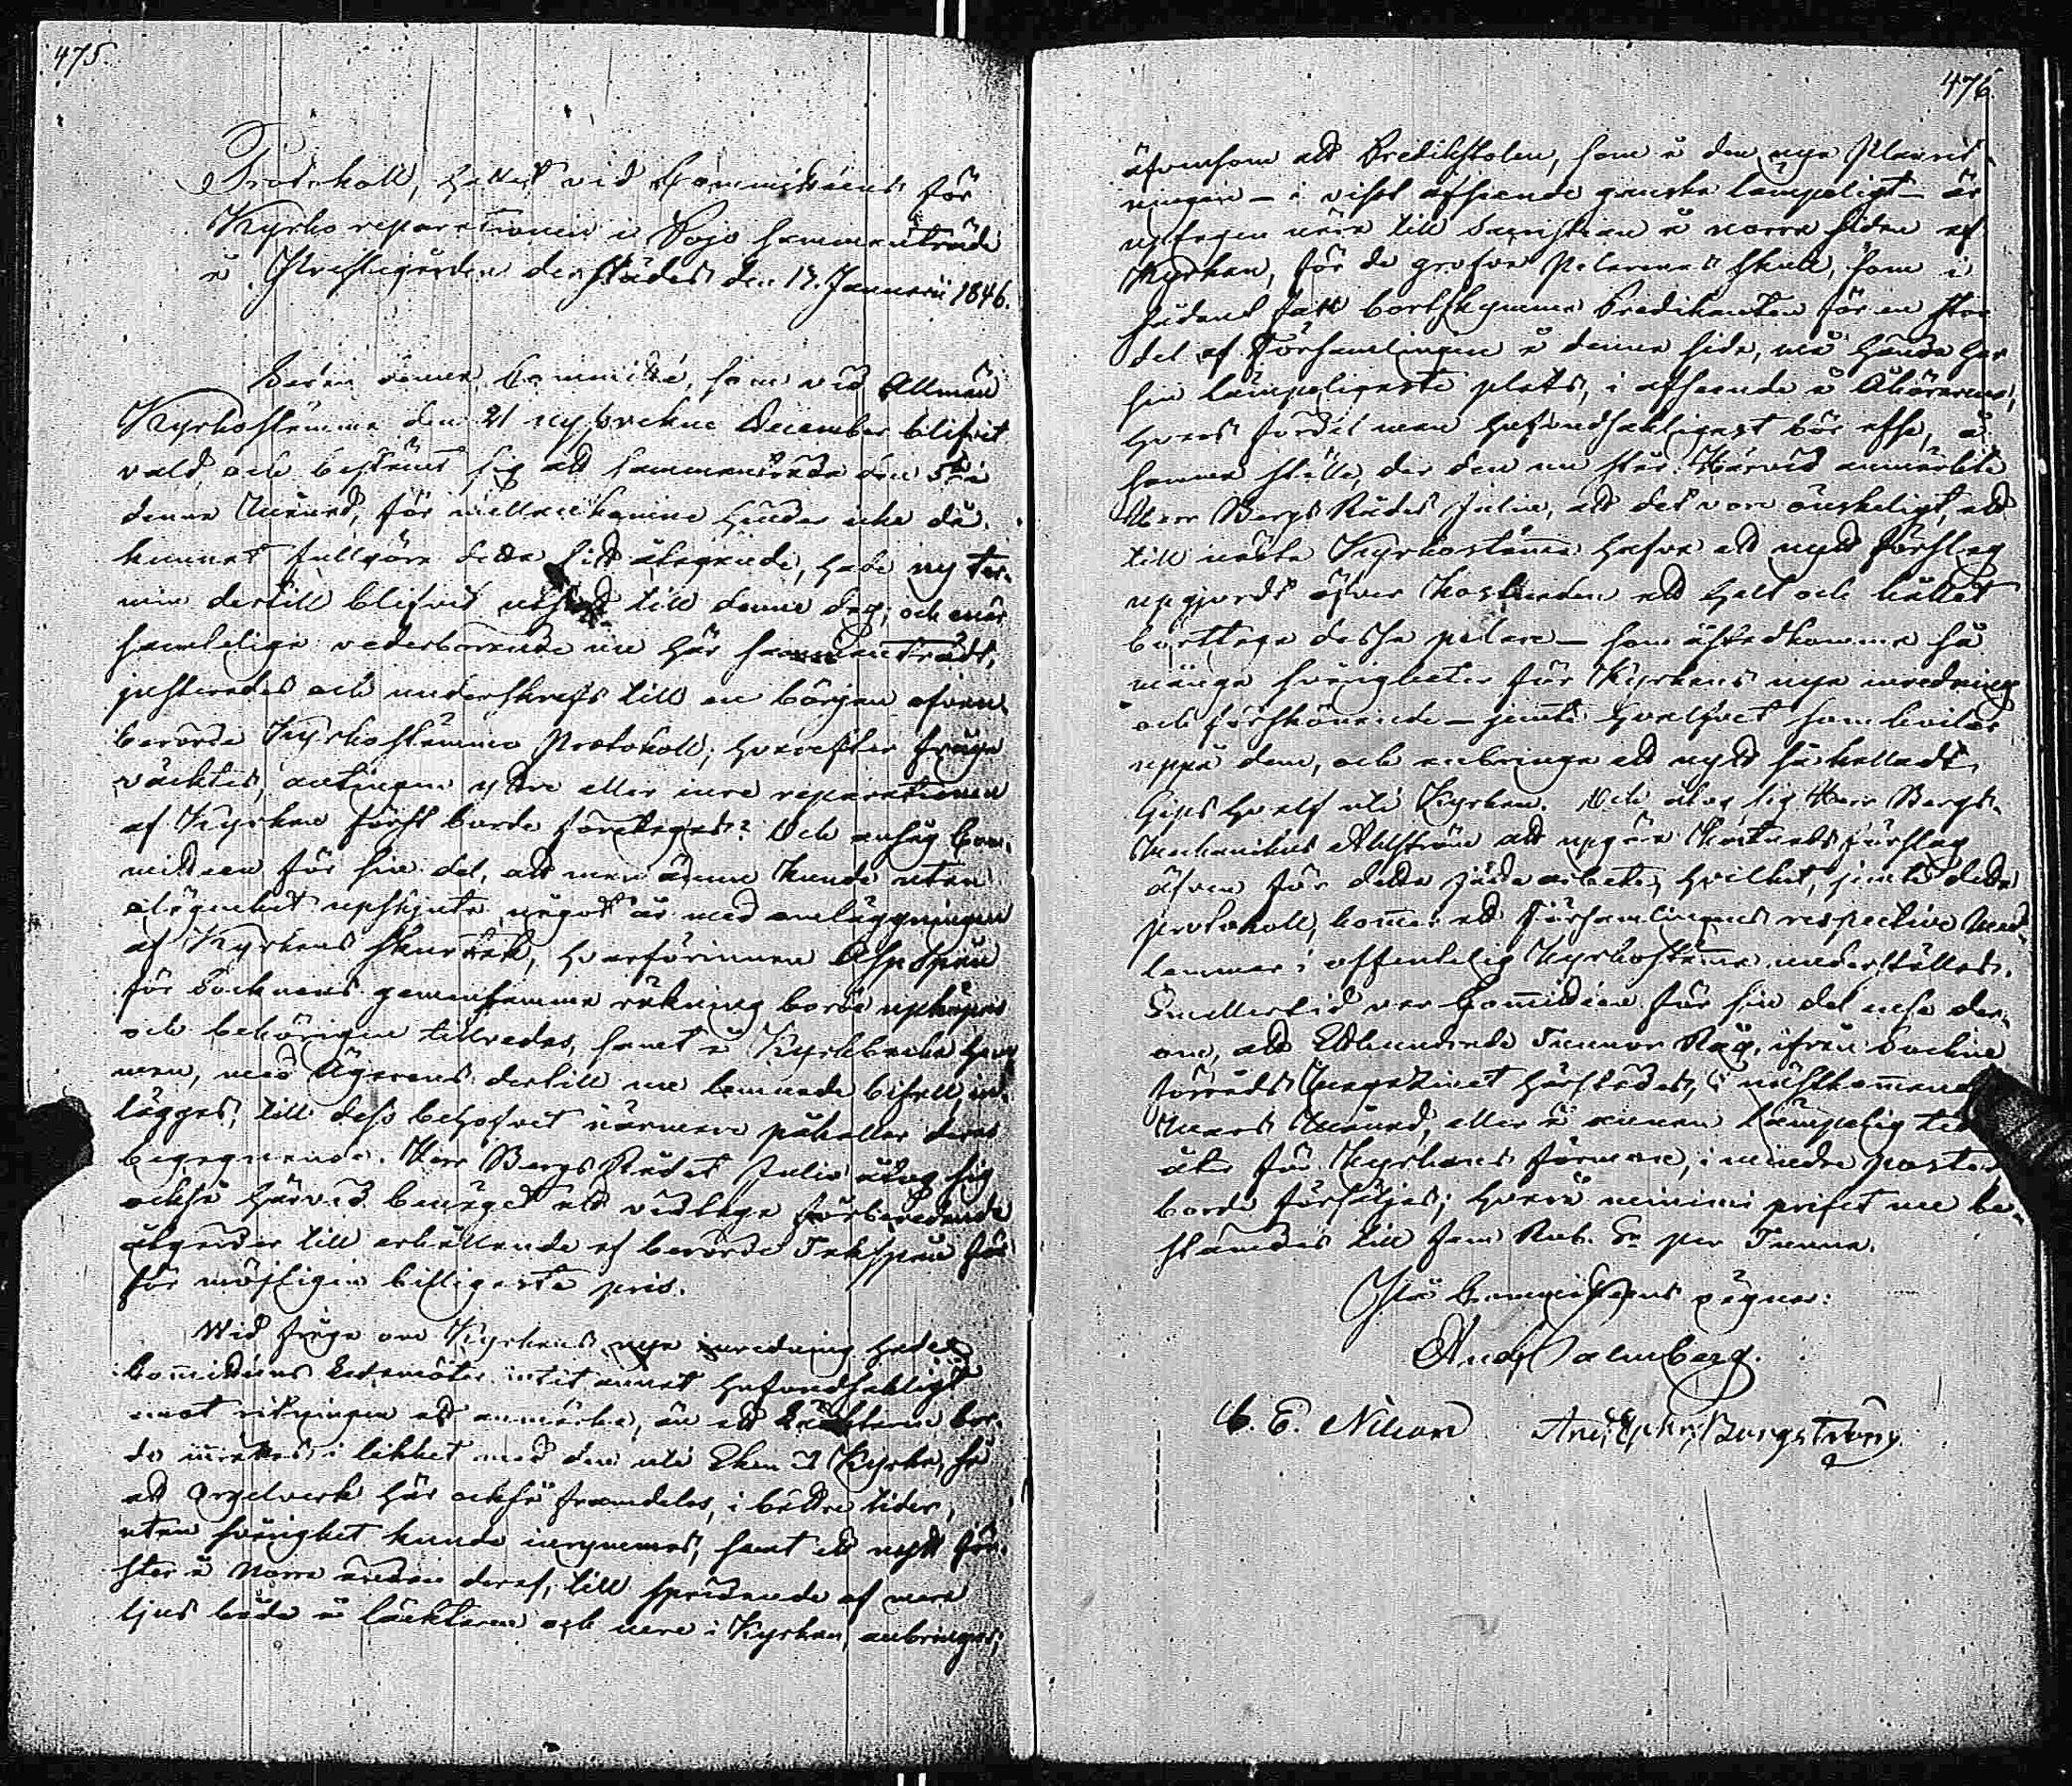 475.
Protokoll, hållet vid Committéens för
Kyrko reparationen i Pojo sammanträde
å Prestegården derstädes den 17. Januarii 1846.
Sedan denna Committé, som vid Allmän
Kyrkostämma den 21 nyssvekne December blifvit
vald och bestämt sig att sammanträda den 5te i
denna Månad, för mellankomne hinder icke då
kunnat fullgöra detta sitt åliggande, hade ny ter-
min dertill blifvit utsatt till denne dag; och enär
samtelige vederbörande nu här sammanträdt,
justerades och underskrefs till en början ofvan-
berörde Kyrkostämmo Protokoll; hvarefter fråga
väcktes, antingen yttre eller inre reparationen
af Kyrkan först borde företagas? Och ansåg Com-
mitteen för sin del, att man ännu kunde utan
olägenhet uppskjuta något år med omläggningen
af Kyrkans tak, hvarförinnan Aspspån
för Socknens gemensamma räkning borde uphöpas
och behörigen tillredas, samt i Kyrkbacka
men, med Ägarens dertill nu lemnade bifall, in-
läggas, till dess behofvet närmare påkallar deras
begagnande. Herr Bergs Rådet Julin åtog sig
också härvid benäget att vidtaga förberedande
åtgärder till erhållande af berörde Takspån för
för möjligen billigaste pris.
Wid fråga om Kyrkans nya inredning hade
Committéens Ledamöter intet annat hufvudsakligt
emot ritningen att anmärka, än att Läktaren bor-
de inrättas i likhet med den uti Ekenäs Kyrka, så
att Orgelverk här också framdeles, i bättre tider,
utan svårighet kunde inrymmas, samt ett nytt fön-
ster å Norra ändan deraf, till spridande af mera
ljus både å läktaren och nere i Kyrkan, anbringas;
476.
äfvensom att Predikstolen, som å den nya Planrit-
ningen – i visst afseende ganska lämpeligt – är
upptagen nära till Sacristian å norra sidan af
Kyrkan, för de grofva Pelarenas skull, som i
sådant fall bortskymma Predikanten för en stor
del af Församlingen å denna sida, må hända har
sin lämpeligaste plats, i afseende å Åhörarene,
hvars fördel man hufvudsakligast bör afse, å
samma ställe, der den nu står. Härvid anmärkte
Herr Bergs Rådet Julin, att det vore önskeligt, att
till nästa Kyrkostämma hafva ett nytt förslag
upgjordt öfver kostnaden att helt och hållet
borttaga dessa pelare – som åstadkomma så
många svårigheter för Kyrkans nya inredning
och förskönande – jemte hvalfvet som hvilar
uppå dem, och anbringa ett nytt så kalladt
Gips hvalf uti Kyrkan. Och åtog sig Herr Bergs-
Mechanikus Ahlström att upgöra Kostnadsförslag
äfven för detta sednare arbete, hvilket, jemte detta
protokoll, kommer att Församlingens respective Med-
lemmar i offentelig Kyrkostämma underställas.
Emellertid var Committéen för sin del ense der-
om, att Etthundrade Tunnor Råg, ifrån Sockne
förråds Magazinet härstädes, i nästkommande
Mars Månad, eller å annan lämpelig tid
åter för Kyrkans förmån, i mindre poster
borde försäljas; hvarå minimi priset nu be-
stämdes till fem Rub. Sr per Tunna.
På Committéens vägnar:
And. Malmberg.
C. E. Nilson And. Bergström.